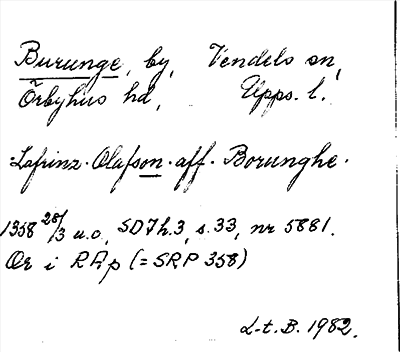 Burunge, by, Vendels sn,
Örbyhus hd, Upps. l.
Lafrinz · Olafson · aff · Borunghe ·
1358 28/3 u.o., SD 7 h.3, s.33, nr 5881.
Or i RAp (= SRP 358)
L-t. B. 1982.